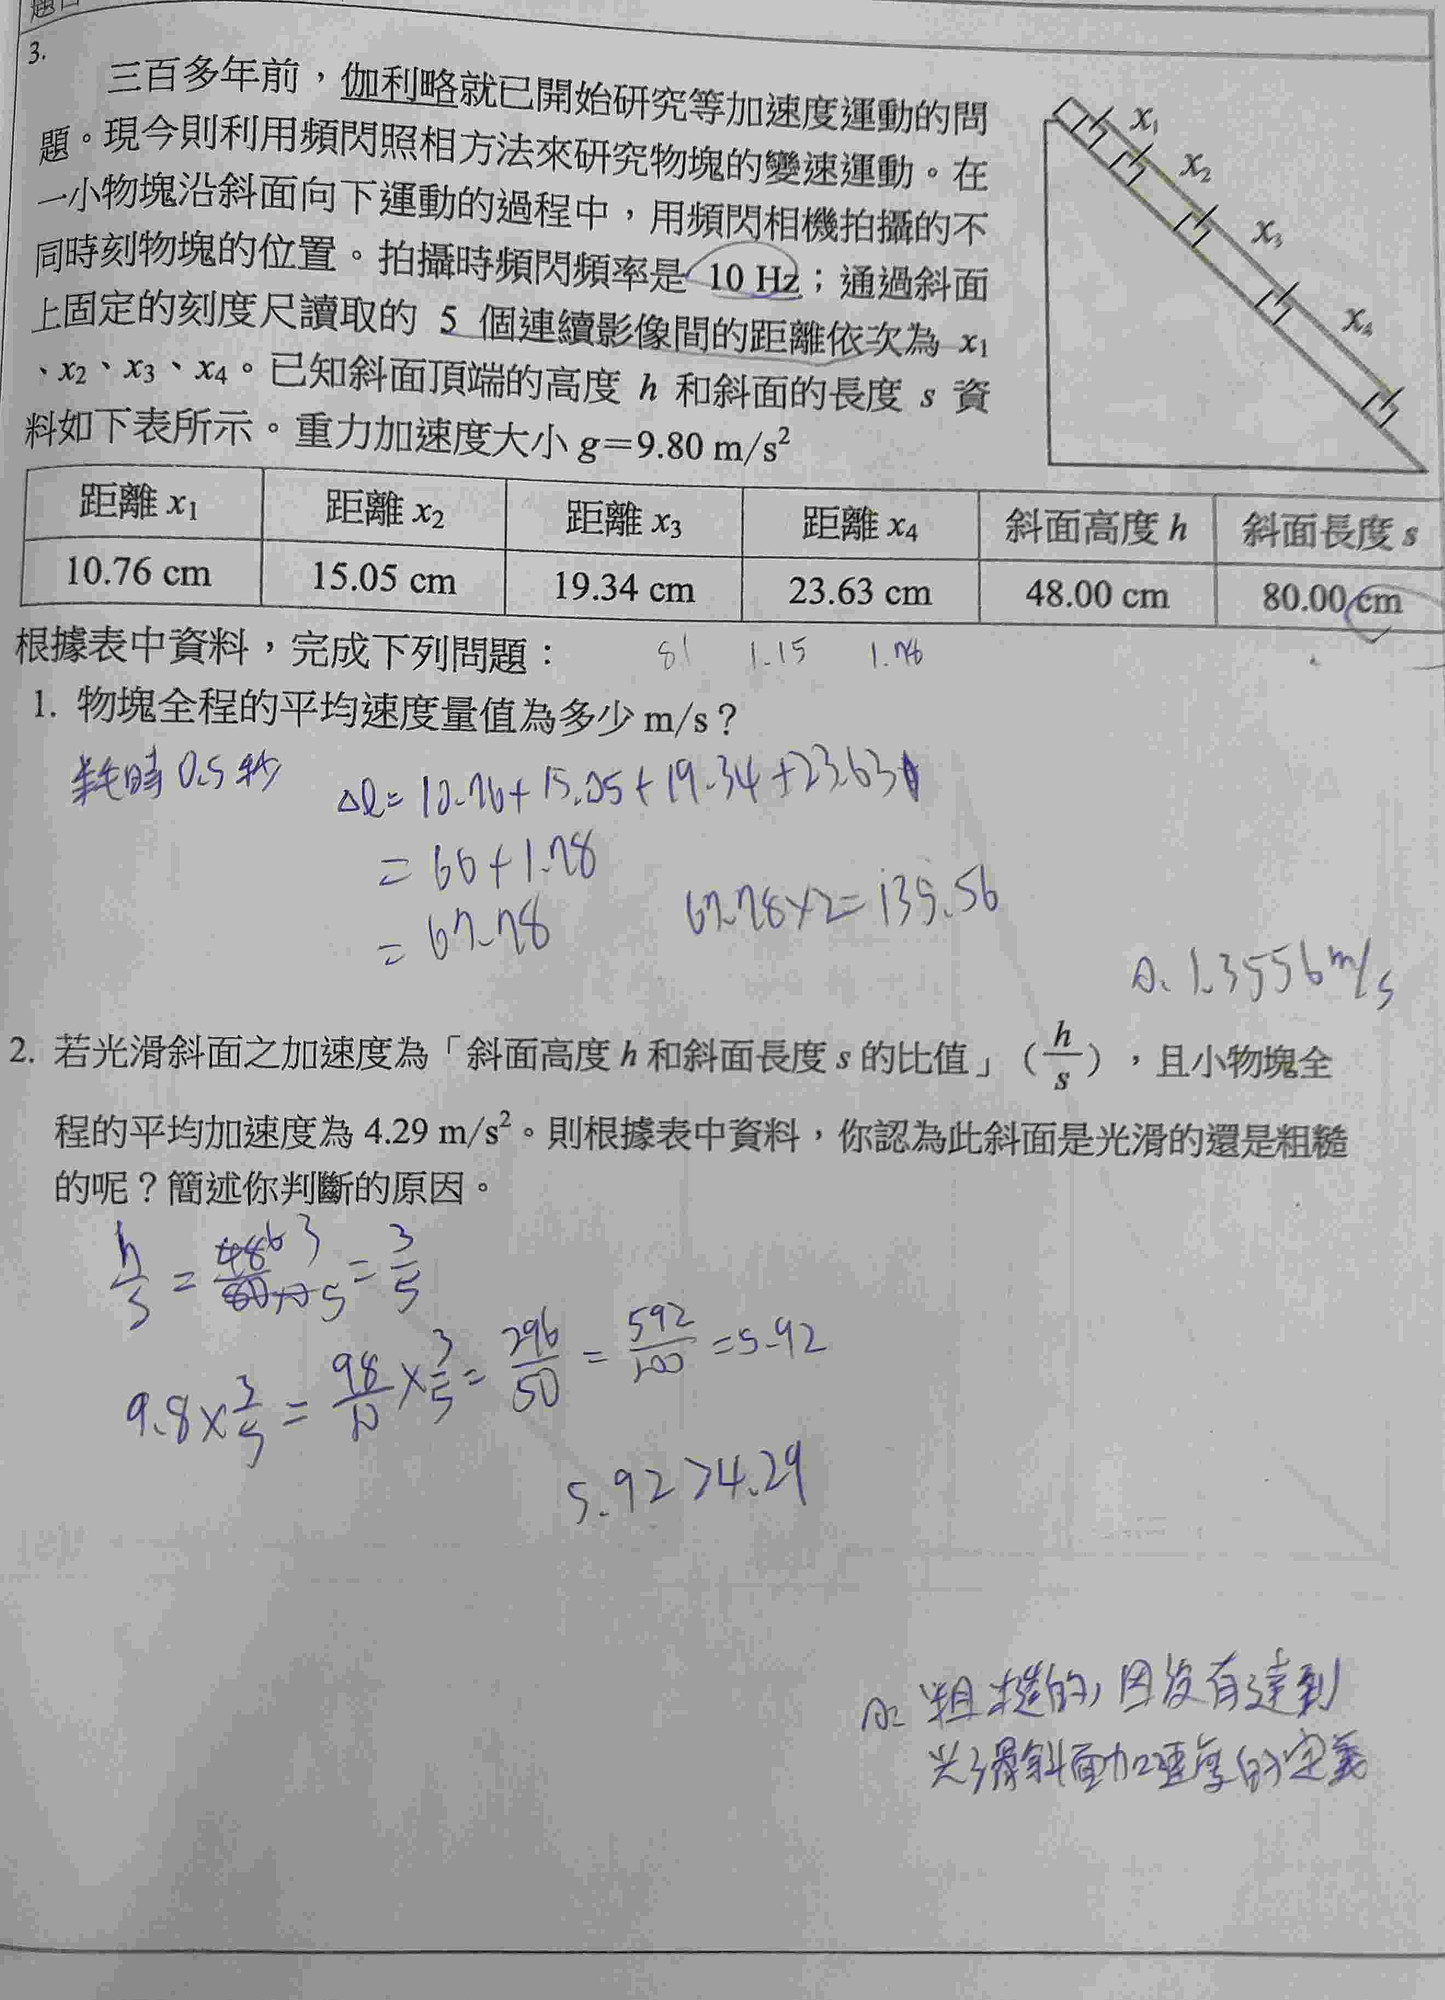 3.
三百多年前，伽利略就已開始研究等加速度運動的問
題。現今則利用頻閃照相方法來研究物塊的變速運動。在
一小物塊沿斜面向下運動的過程中，用頻閃相機拍攝的不
同時刻物塊的位置。拍攝時頻閃頻率是 10 Hz；通過斜面
上固定的刻度尺讀取的 5 個連續影像間的距離依次為 x₁
、x₂、x₃、x₄。已知斜面頂端的高度 h 和斜面的長度 s 資
料如下表所示。重力加速度大小 g＝9.80 m/s²
x₁
x₂
x₃
x₄
距離 x₁ 距離 x₂ 距離 x₃ 距離 x₄ 斜面高度 h 斜面長度 s
10.76 cm 15.05 cm 19.34 cm 23.63 cm 48.00 cm 80.00 cm
根據表中資料，完成下列問題：
81 1.15 1.78
1. 物塊全程的平均速度量值為多少 m/s？
耗時 0.5 秒
Δl= 10.76+15.05+19.34+23.63
= 66+1.78
= 67.78
67.78×2=135.56
A: 1.3556 m/s
2. 若光滑斜面之加速度為「斜面高度 h 和斜面長度 s 的比值」（h/s），且小物塊全
程的平均加速度為 4.29 m/s²。則根據表中資料，你認為此斜面是光滑的還是粗糙
的呢？簡述你判斷的原因。
h/s = 48/80 = 3/5
9.8×3/5 = 98/10×3/5 = 296/50 = 592/100 = 5.92
5.92>4.29
A: 粗糙的，因沒有達到
光滑斜面加速度的定義